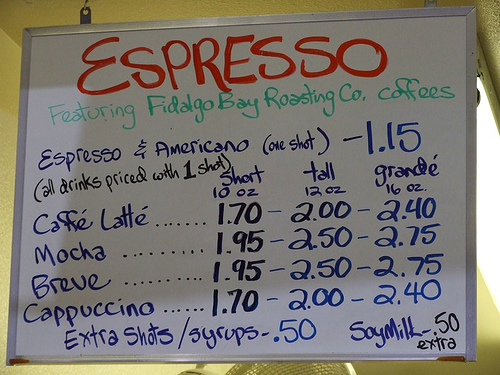 ESPRESSO
Featuring Fidalgo Bay Roasting Co. coffees
Espresso & Americano (one shot) - 1.15
(all drinks priced with 1 shot)
short tall grandé
10 oz 12 oz 16 oz.
Caffé Latté ...... 1.70 - 2.00 - 2.40
Mocha ........ 1.95 - 2.50 - 2.75
Breve .......... 1.95 - 2.50 - 2.75
Cappuccino ...... 1.70 - 2.00 - 2.40
Extra Shots / syrups - .50 Soy Milk - .50
extra